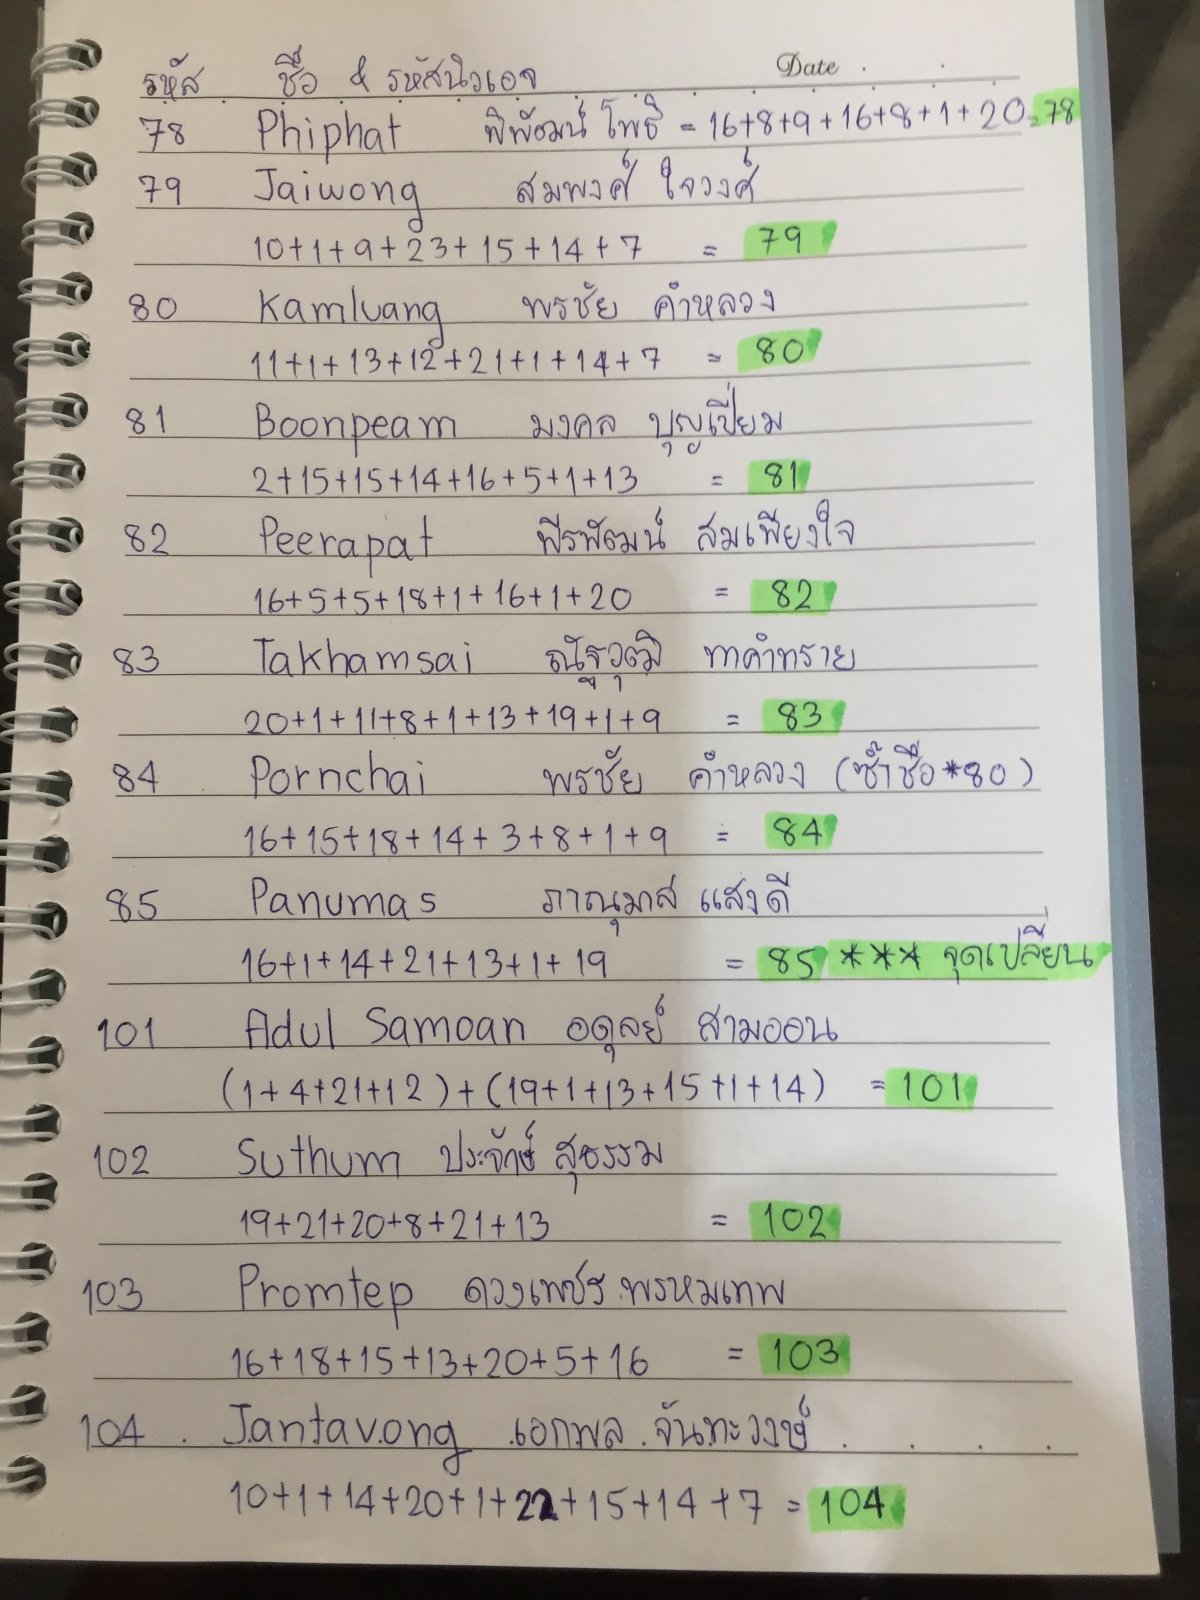 Date
รหัส ชื่อ & รหัสนิวเอจ
78 Phiphat พิพัฒน์ โพธิ = 16+8+9+16+8+1+20=78
79 Jaiwong สมพงศ์ ใจวงศ์
10+1+9+23+15+14+7 = 79
80 Kamluang พรชัย คำหลวง
11+1+13+12+21+1+14+7 = 80
81 Boonpeam มงคล บุญเปี่ยม
2+15+15+14+16+5+1+13 = 81
82 Peerapat พีรพัฒน์ สมเพียงใจ
16+5+5+18+1+16+1+20 = 82
83 Takhamsai ณัฐวุฒิ ทาคำทราย
20+1+11+8+1+13+19+1+9 = 83
84 Pornchai พรชัย คำหลวง (ซ้ำชื่อ*80)
16+15+18+14+3+8+1+9 = 84
85 Panumas ภาณุมาส แสงดี
16+1+14+21+13+1+19 = 85 *** จุดเปลี่ยน
101 Adul Samoan อดุลย์ สามออน
(1+4+21+12)+(19+1+13+15+1+14) = 101
102 Suthum ประจักษ์ สุธรรม
19+21+20+8+21+13 = 102
103 Promtep ดวงเพชร พรหมเทพ
16+18+15+13+20+5+16 = 103
104 Jantavong เอกพล จันทะวงษ์
10+1+14+20+1+22+15+14+7 = 104